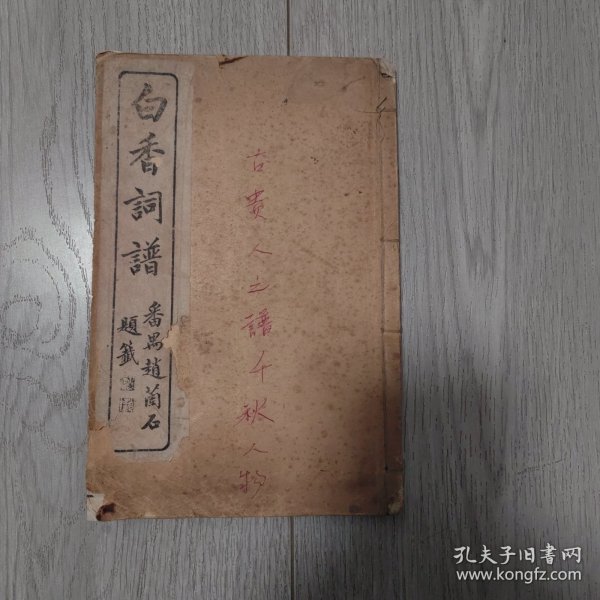 白香詞譜
番禺趙蘭石
題籤
古貴人之譜千秘人物
孔夫子旧书网
www.kongfz.com